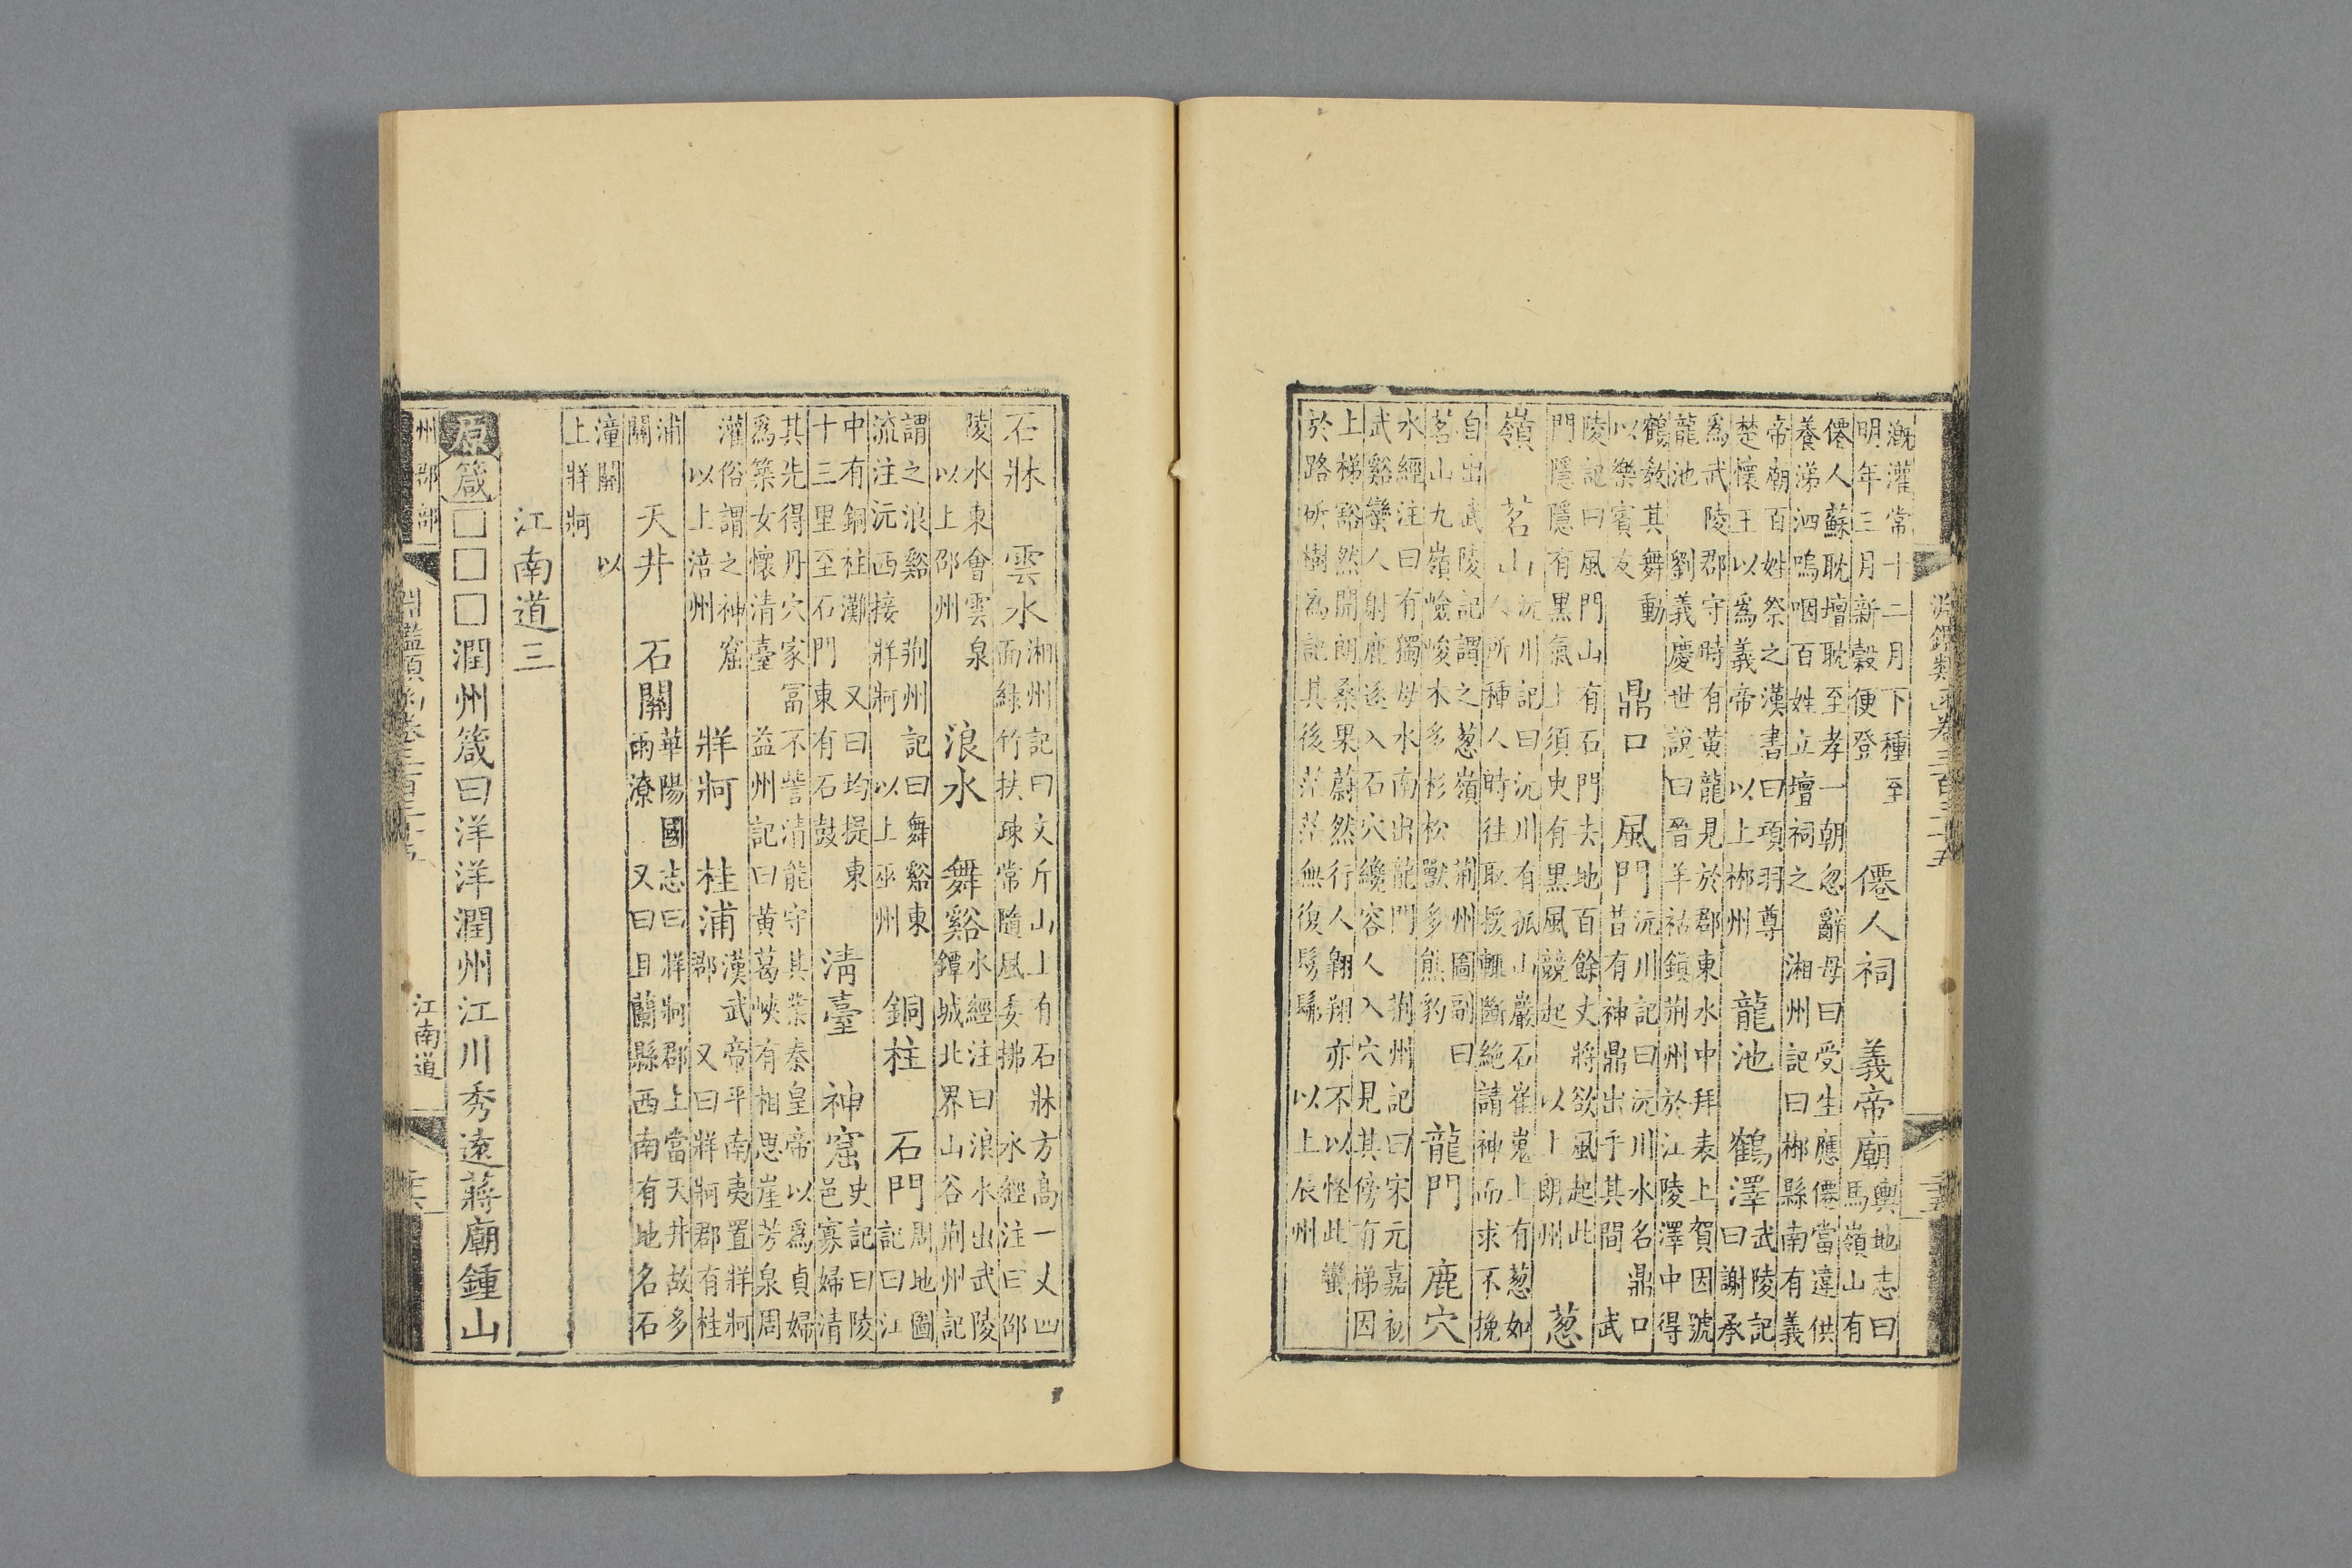 淵鑑類函卷三百三十五
溉灌常十二月下種至
明年三月新穀便登
僊人祠 義帝廟
輿地志曰
馬嶺山有
僊人蘇耽壇耽至孝一朝忽辭母曰受生應僊當違供
養涕泗嗚咽百姓立壇祠之 湘州記曰郴縣南有義
帝廟百姓祭之漢書曰項羽尊
楚懷王以爲義帝 以上郴州
龍池 鶴澤
武陵記
曰謝承
爲武陵郡守時有黃龍見於郡東水中拜表上賀因號
龍池 劉義慶世說曰晉羊祜鎮荊州於江陵澤中得
鶴教其舞動
以樂賓友
鼎口 風門
沅川記曰沅川水名鼎口
昔有神鼎出乎其間 武
陵記曰風門山有石門去地百餘丈將欲風起此
門隱隱有黑氣上須臾有黑風競起 以上朗州
葱
嶺 茗山
沅川記曰沅川有孤山巖石崔嵬上有葱如
人所種人時往取援輒斷絕請神而求不挽
自出武陵記謂之葱嶺 荊州圖副曰
茗山九嶺嶮峻木多杉松獸多熊豹
龍門 鹿穴
水經注曰有獨母水南出龍門 荊州記曰宋元嘉初
武谿蠻人射鹿逐入石穴纔容人入穴見其傍有梯因
上梯豁然開朗桑果蔚然行人翱翔亦不以怪此蠻
於路斫樹為記其後茫茫無復髣髴 以上辰州
石牀 雲水
湘州記曰文斤山上有石牀方高一丈四
面綠竹扶疎常隨風委拂 水經注曰邵
陵水東會雲泉
以上邵州
浪水 舞谿
水經注曰浪水出武陵
鐔城北界山谷 荊州記
謂之浪谿 荊州記曰舞谿東
流注沅西接牂牁 以上巫州
銅柱 石門
周地圖
記曰江
中有銅柱灘 又曰均提東
十三里至石門東有石鼓
清臺 神窟
史記曰陵
邑寡婦清
其先得丹穴家富不訾清能守其業秦皇帝以爲貞婦
爲築女懷清臺 益州記曰黃葛峽有相思崖芳泉周
灌俗謂之神窟
以上涪州
牂牁 桂浦
漢武帝平南夷置牂牁
郡 又曰牂牁郡有桂
浦
關
天井 石關
華陽國志曰牂牁郡上當天井故多
雨潦 又曰且蘭縣西南有地名石
潼關 以
上牂牁
江南道三
原箴□□□潤州箴曰洋洋潤州江川秀遠蔣廟鍾山
州郡部
江南道